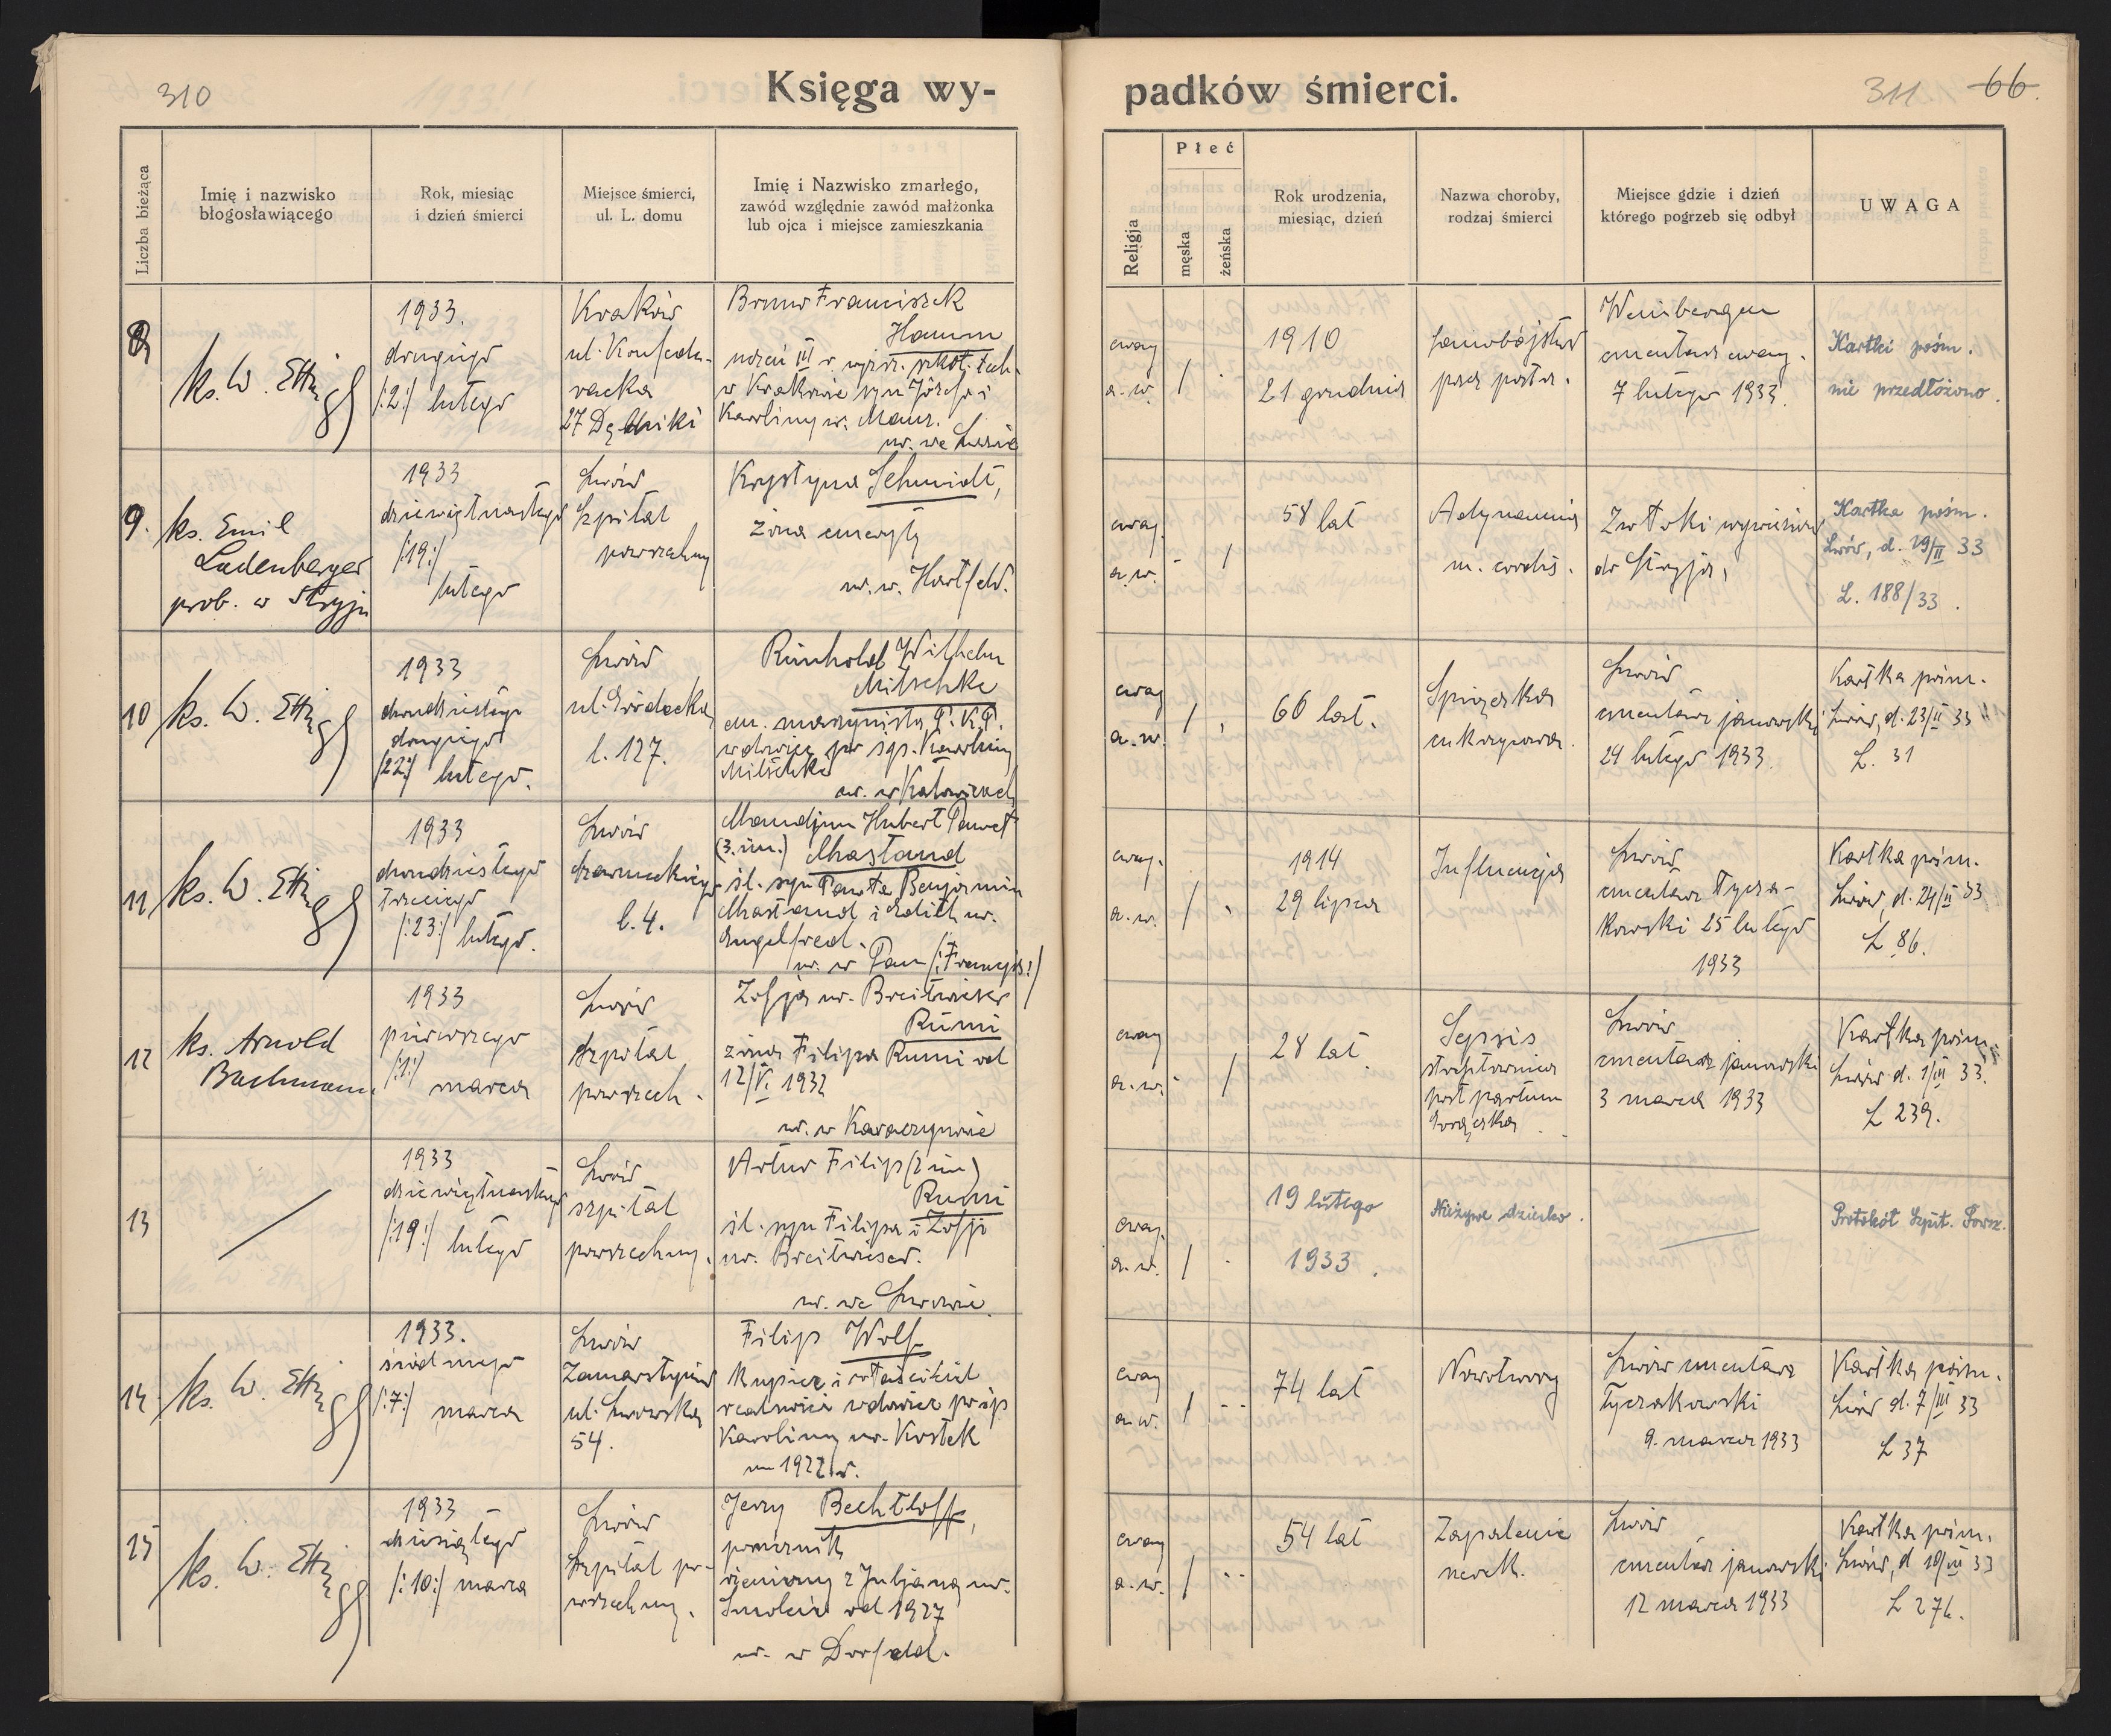 310
Księga wy-
padków śmierci.
311 66.
Liczba bieżąca
Imię i nazwisko
błogosławiącego
Rok, miesiąc
i dzień śmierci
Miejsce śmierci,
ul. L. domu
Imię i Nazwisko zmarłego,
zawód względnie zawód małżonka
lub ojca i miejsce zamieszkania
Religja
Płeć
męska
żeńska
Rok urodzenia,
miesiąc, dzień
Nazwa choroby,
rodzaj śmierci
Miejsce gdzie i dzień
którego pogrzeb się odbył
UWAGA
8
ks. W. Ettinger
1933.
drugiego
/:2:/ lutego
Kraków
ul. Konfede-
racka
27 Dębniki
Bruno Franciszek
Hamm
uczeń III r. wyższ. szkoły tech.
w Krakowie syn Józefa i
Karoliny
ur. we Lwowie
ewag
a.w.
/
1910
21 grudnia
samobójstwo
Weinbergen
cmentarz ewang.
7 lutego 1933.
Kartki pośm.
nie przedłożono.
9.
ks. Emil
Ladenberger
prob. w Stryju
1933
dziewiętnastego
/:19:/
lutego
Lwów
Szpital
powszechny
Krystyna Schmidt,
żona emeryty
ur. w. Hartfeld.
ewag.
a.w. - /
58 lat
Adynamia
m. cordis.
Zwłoki wywieziono
do Stryja,
Kartka pośm.
Lwów, d. 19/II 33
L. 188/33.
10
ks. W. Ettinger
1933
dwudziestego
drugiego
/22:/ lutego.
Lwów
ul. Gródecka
l. 127.
Reinhold Wilhelm
Mitschke
em. maszynista P.K.P.
wdowiec po śp. Karolinie
Mitschke
ur. w Katowicach
ewag
a.w. /
66 lat.
Śpiączka
cukrzycowa.
Lwów
cmentarz janowski
24 lutego 1933.
Kartka pośm.
Lwów, d. 23/II 33
L. 31
11
ks. W. Ettinger
1933
dwudziestego
trzeciego
/:23:/ lutego.
Lwów
l. 4.
Hubert Paweł
(3. im.) Mastand
śl. syn Pawła Benjamin
Mastand i Edith ur.
Engelfred.
ur. w Pau /:Francja:/
ewag.
a.w. /
1914
29 lipca
Influencja
Lwów
cmentarz łycza-
kowski 25 lutego
1933
Kartka pośm.
Lwów, d. 24/II 33
L 86.
12
ks. Arnold
Bachmann
1933
pierwszego
/:1:/ marca
Lwów
szpital
powszech.
Zofja ur. Breitwieser
Rumi
żona Filipa Rumi od
12/V. 1932
ur. w Karaczynowie
ewag
a.w. - /
28 lat.
Sepsis
post partum
Gorączka
Lwów
cmentarz janowski
3 marca 1933
Kartka pośm.
Lwów d. 1/III 33.
L 239.
13
1933
dziewiętnastego
/:19:/ lutego
Lwów
szpital
powszechny.
Artur Filip (2 im)
Rumi
śl. syn Filipa i Zofji
ur. Breitwieser.
ur. we Lwowie.
ewag.
a.w. /
19 lutego
1933.
Nieżywe dziecko.
Protokół Szpit. Powsz.
14
ks. W. Ettinger
1933.
siódmego
/:7:/ marca
Lwów
Zamarstynów
ul. Lwowska
54.
Filip Wolf
kupiec i właściciel
realności wdowiec po śp
Karolinie ur. Kostek
1922 r.
ewag
a.w. /
74 lat
Nowotwory
Lwów cmentarz
łyczakowski
9. marca 1933
Kartka pośm.
Lwów d. 7/III 33
L 37
15
ks. W. Ettinger
1933
dziesiątego
/:10:/ marca
Lwów
Szpital po-
wszechny.
Jerzy Bechtloff,
żeniony z Juljanną ur.
od 1927
ur. w Dorfeld.
ewag
a.w. /
54 lat
Zapalenie
nerek.
Lwów
cmentarz janowski
12 marca 1933
Kartka pośm.
Lwów, d 10/III 33
L 276.